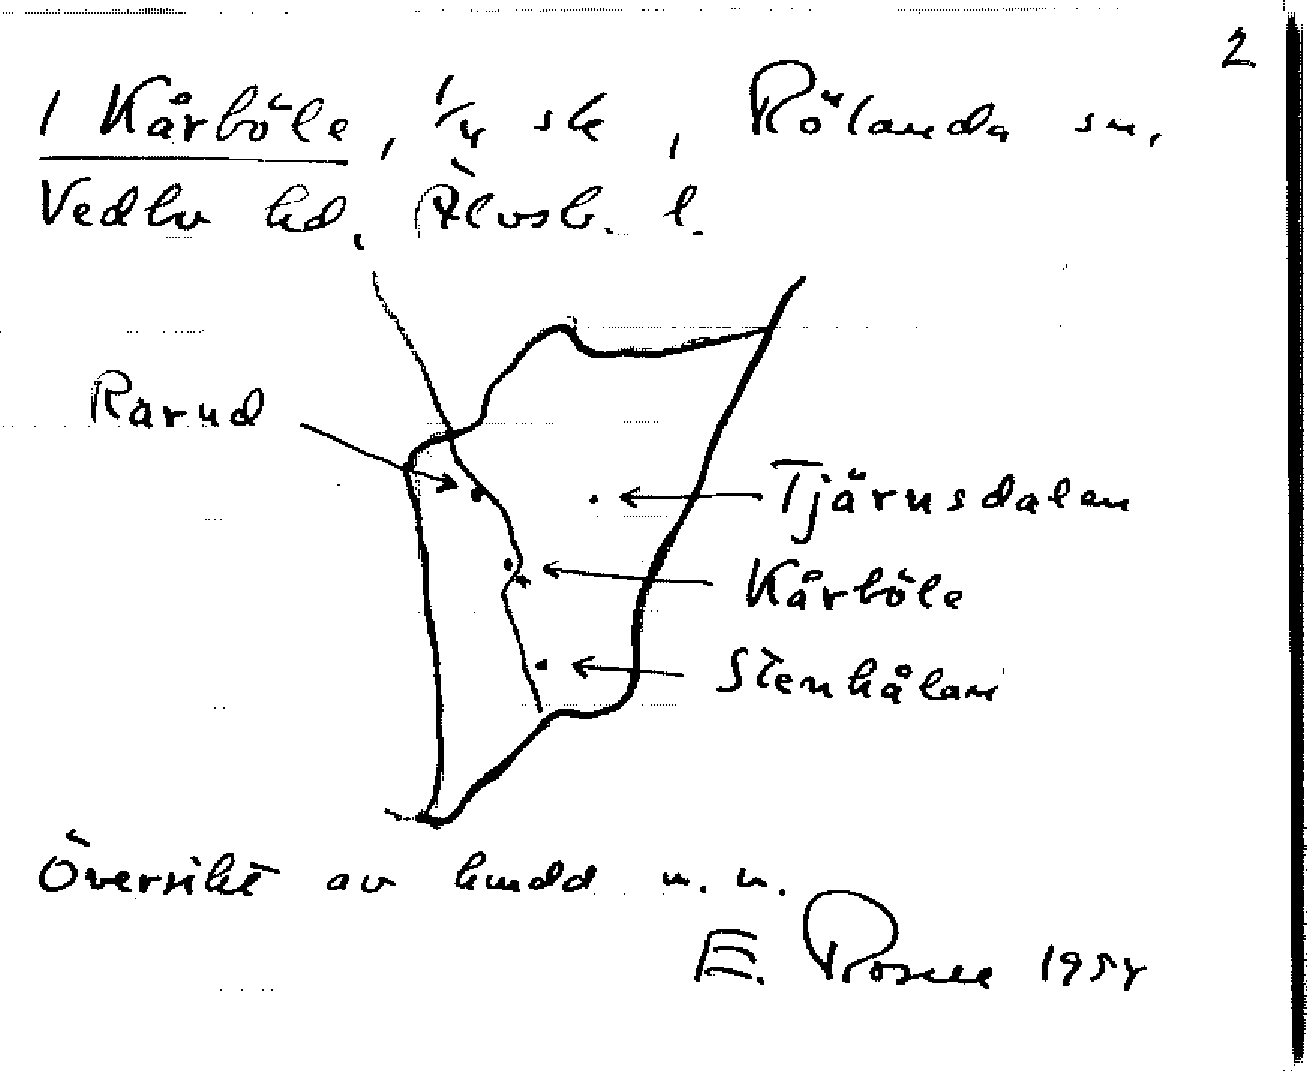 2
1 Kårböle, 1/4 sk, Rölanda sn,
Vedbo hd, Älvsb. l.
Rarud
Tjärnsdalen
Kårböle
Stenhålan
Översikt av
E. Rosell 195